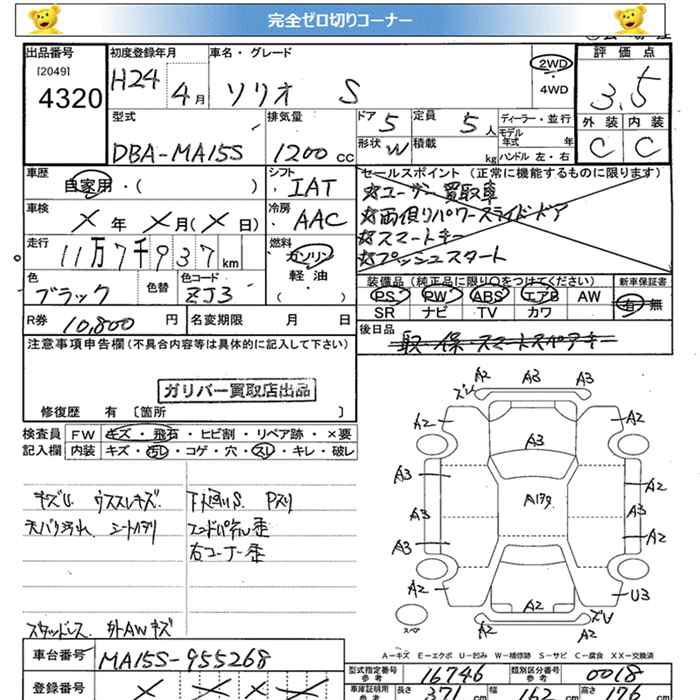 完全ゼロ切りコーナー
出品番号 初度登録年月 車名・グレード 評価点
[2049] 4320 H24 4月 ソリオ S 2WD ・ 4WD 3.5
型式 排気量 ドア 5 定員 5人 ディーラー・並行 外装 内装
モデル年式 年
DBA-MA15S 1200cc 形状 W 積載 kg ハンドル 左・右 C C
車歴 自家用・( ) シフト IAT セールスポイント (正常に機能するものに限ります)
☆ユーザー買取車
車検 X年 X月(X日) 冷房 AAC ☆両側パワースライドドア
☆スマートキー
走行 11万7千937km 燃料 ガソリン 軽油 ( ) ☆プッシュスタート
色 ブラック 色替 色コード ZJ3 装備品 (純正品に限り○をつけてください) 新車保証書
PS PW ABS エアB AW 有・無
SR ナビ TV カワ
R券 10,800円 名変期限 月 日 後日品
取 保 スマートスペアキー
注意事項申告欄(不具合内容等は具体的に記入して下さい)
ガリバー買取店出品
修復歴 有 〔箇所 〕
検査員 FW キズ・飛石・ヒビ割・リペア跡・×要
記入欄 内装 キズ・汚レ・コゲ・穴・スレ・キレ・破レ
キズU ウススレキズ 下廻りS Pスリ
天バリ汚れ シートハゲリ エンドパネル歪
右コーナー歪
スタッドレス 外AWキズ
ズレ A2 A3 A3
A2 A2
A3
A3 A17g A2
A3 A3
A3 A2
A2 A2 U3
スペア ズU A2
A-キズ E-エクボ U-凹み W-補修跡 S-サビ C-腐食 XX-交換済
車台番号 MA15S-955268 型式指定番号 参考 16746 類別区分番号 参考 0018
登録番号 車庫証明用 参考 長さ 371 cm 幅 162 cm 高さ 176 cm